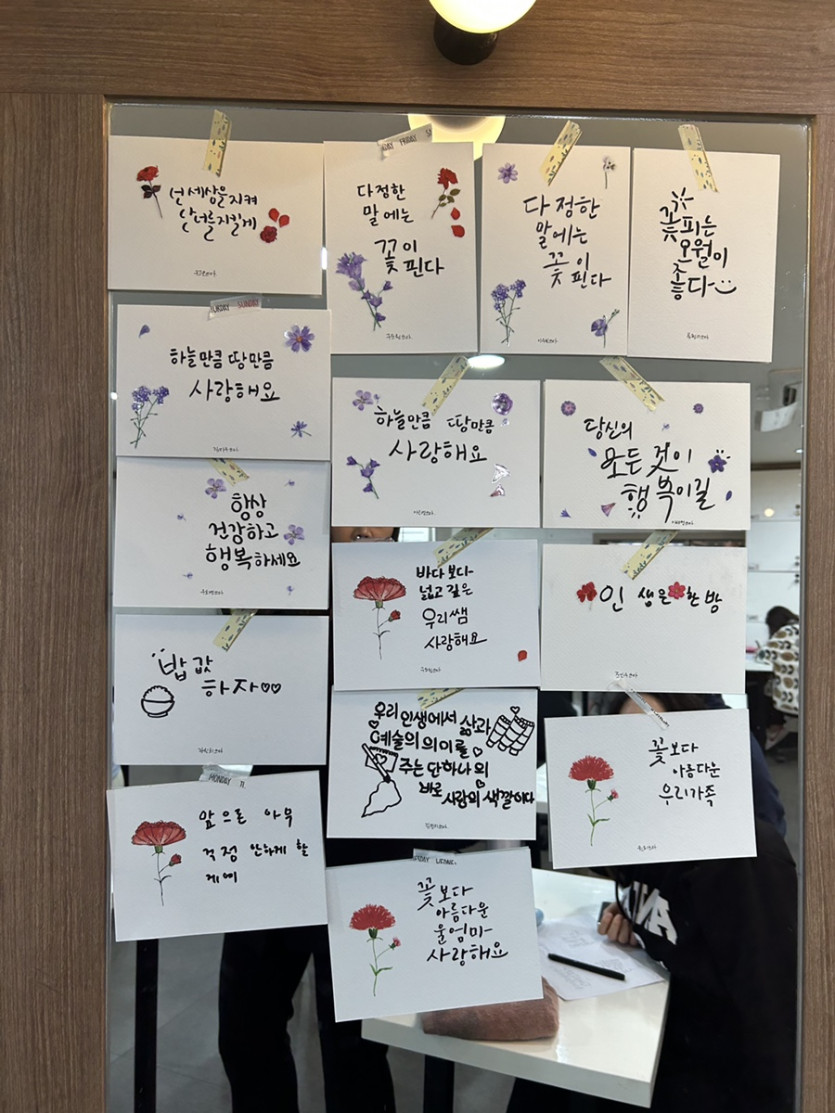 넌 세상을 지켜
난 너를 지킬게
다정한
말에는
꽃이
핀다
다정한
말에는
꽃이
핀다
꽃피는
오월이
좋다
하늘만큼 땅만큼
사랑해요
하늘만큼 땅만큼
사랑해요
당신의
모든 것이
행복이길
항상
건강하고
행복하세요
바다보다
넓고 깊은
우리쌤
사랑해요
인생은 한방
밥값
하자♡♡
우리 인생에서 삶과
예술의 의미를
주는 단 하나의
바로 사랑의 색깔이다
꽃보다
아름다운
우리가족
앞으론 아무
걱정 안하게 할
게에
꽃보다
아름다운
울엄마
사랑해요
MONDAY
SUNDAY
FRIDAY